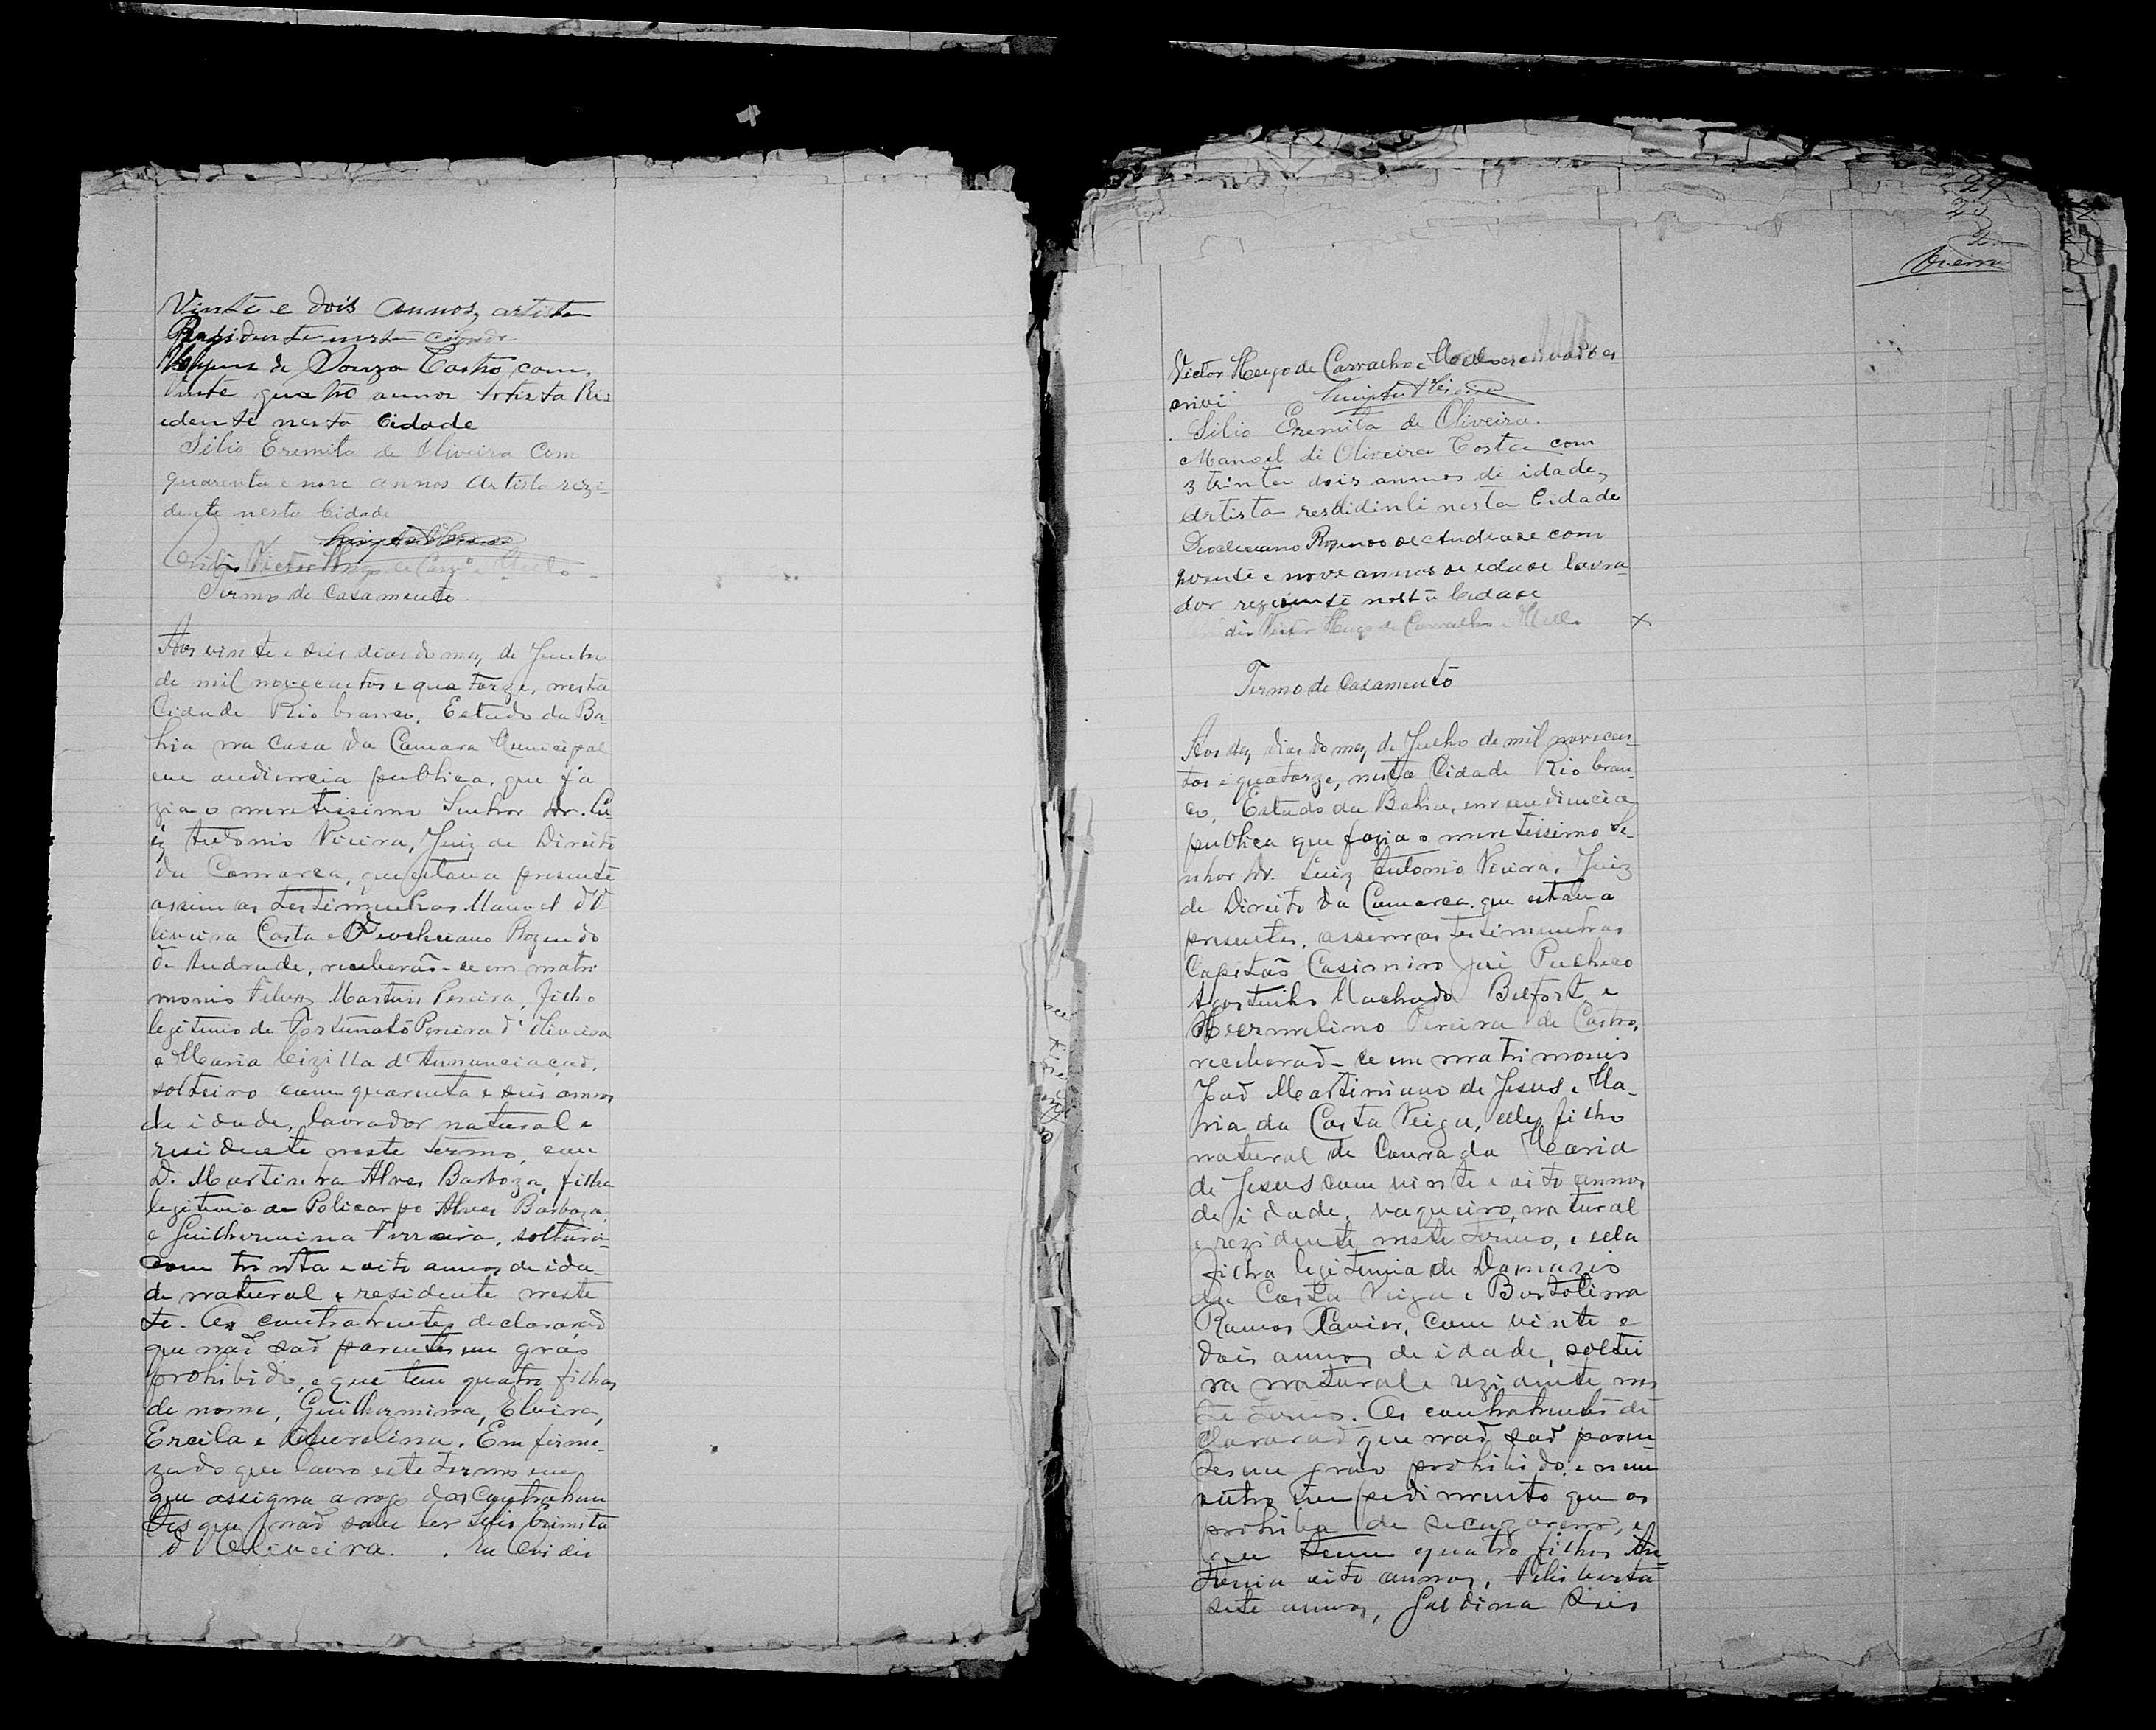 Vinte e dois annos, artista
Residente nesta cidade
de Souza Castro, com
Vinte quatro annos Artista Ris
edente nesta Cidade
Silio Eremita de Oliveira Com
quarenta e nove annos Artista rezi-
dente nesta Cidade
Victor Hugo de
Termo de Casamento
Aos vinte e seis dias do mez de Junho
de mil novecentos e quatorze, nesta
Cidade Rio branco, Estado da Ba-
hia na Casa da Camara Municipal
em audiencia publica, que fa
zia o meretissimo Senhor Dr. Lu
iz Antonio Vieira, Juiz de Direito
da Comarca, que estava presente
assim as testimunhas Manoel d'O
liveira Costa e Deocleciano Rozendo
de Andrade, receberão-se em matri
monio Martins Pereira, filho
legitimo de Fortunato Pereira d'Oliveira
e Maria Cizilla d'Annunciação,
solteiro com quarenta e seis annos
de idade, lavrador natural e
residente neste termo, com
D. Martinha Alves Barboza, filha
legitima de Policarpo Alves Barboza
e Guilhermina Ferreira, solteira
com trinta e oito annos de ida-
de natural e residente neste
te. Os contrahentes declararão
que não são parentes em gráo
prohibido, e que tem quatro filhos
de nome, Guilhermina, Elvira,
Ercila e Aurelina. Em firme-
za do que lavro este termo em
que assigna a rogo dos Contrahen
tes que não sabe ler Silio Erimita
d'Oliveira. Eu Ovidio
Victor Hugo de Carvalho e Mello escrivão o es
crivi
Silio Eremita de Oliveira.
Manoel di Oliveira Costa com
3 trinta dois annos di idade,
Artista residinti nesta Cidade
Deocleciano Rozendo de Andrade com
vinte e nove annos de idade lavra-
dor rezidente nesta Cidade
Victor Hugo de Carvalho e Mello X
Termo de Casamento
Aos dez dias do mez de Julho de mil novecen-
tos e quatorze, nesta Cidade Rio bran-
co, Estado da Bahia, em audiencia
publica que fazia o meretissimo Se-
nhor Dr. Luiz Antonio Vieira, Juiz
de Direito da Comarca que estava
presentes, assim as testimunhas
Capitão Casimiro José Pacheco
Agostinho Machado Belfort, e
Hermelino Pereira de Castro,
receberão-se em matrimonio
João Martiniano de Jesus e Ma-
ria da Costa Veiga, elle filho
natural de Conrada Maria
de Jesus com vinte e oito annos
de idade, vaqueiro, natural
e rezidente neste termo, e ella
filha legitima de Damazio
da Costa Veiga e Bertolina
Ramos Xavier, com vinte e
dois annos de idade, soltei
ra natural e rezidente nes
te termo. Os contrahentes de
clararão que não são paren
tes em gráo prohibido, e nem
outro impedimento que os
prohiba de se cazarem, e
que teem quatro filhos An-
tonia oito annos, Felisberta
sete annos, Galdina Seis